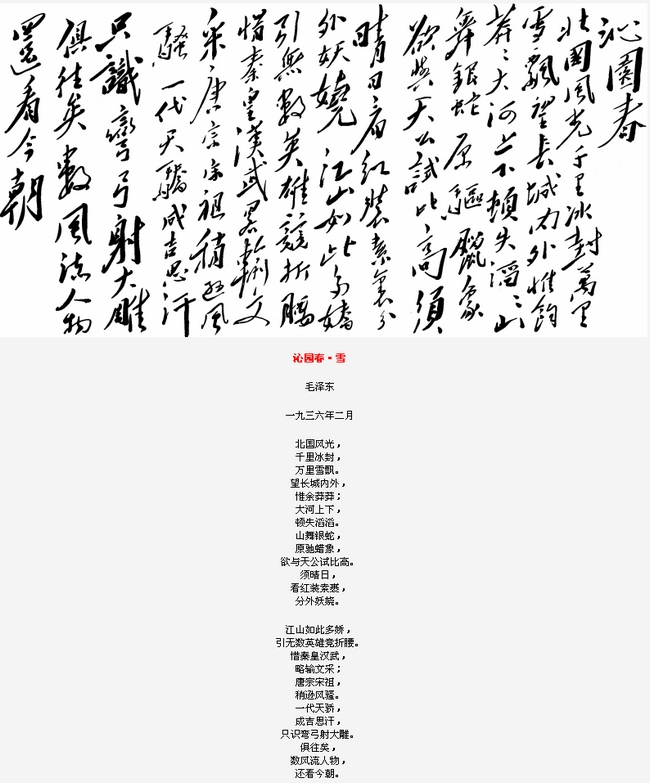 沁園春
北國風光千里冰封萬里
雪飄望長城内外惟餘
莽〻大河上下頓失滔〻山
舞銀蛇原驅臘象
欲與天公試比高須
晴日看紅裝素裹分
外妖嬈江山如此多嬌
引無數英雄競折腰
惜秦皇漢武略輸文
采唐宗宋祖稍遜風
騷一代天驕成吉思汗
只識彎弓射大雕
俱往矣數風流人物
還看今朝
沁园春·雪
毛泽东
一九三六年二月
北国风光,
千里冰封,
万里雪飘。
望长城内外,
惟余莽莽;
大河上下,
顿失滔滔。
山舞银蛇,
原驰蜡象,
欲与天公试比高。
须晴日,
看红装素裹,
分外妖娆。
江山如此多娇,
引无数英雄竞折腰。
惜秦皇汉武,
略输文采;
唐宗宋祖,
稍逊风骚。
一代天骄,
成吉思汗,
只识弯弓射大雕。
俱往矣,
数风流人物,
还看今朝。